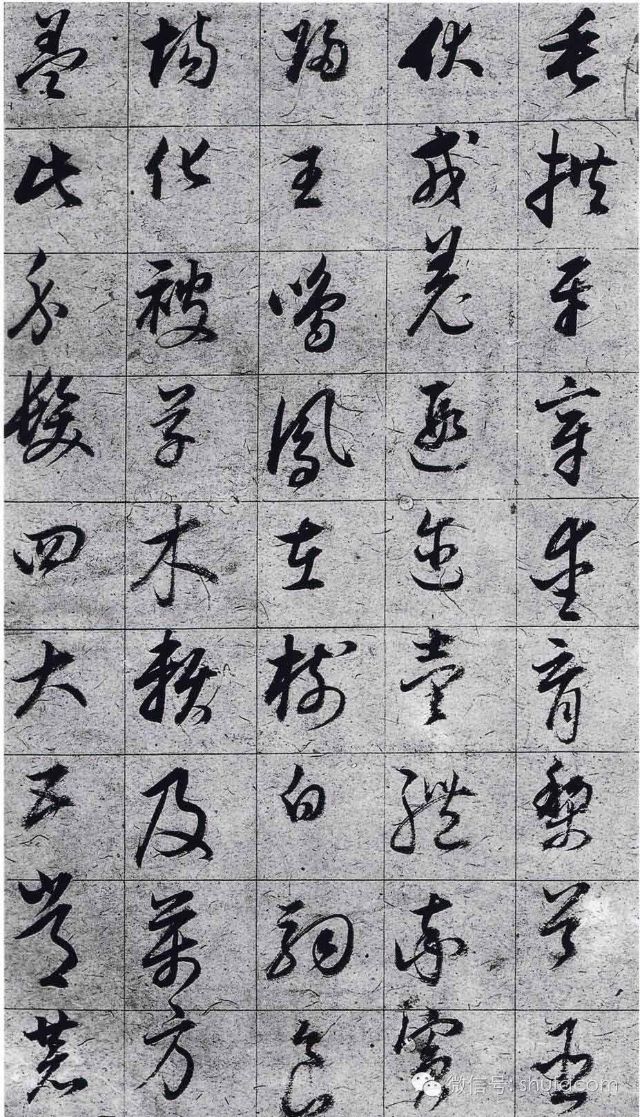 垂拱平章愛育黎首臣
伏戎羌遐迩壹體率賓
歸王鳴鳳在樹白駒食
場化被草木賴及萬方
蓋此身髮四大五常恭
微信号: shufacom